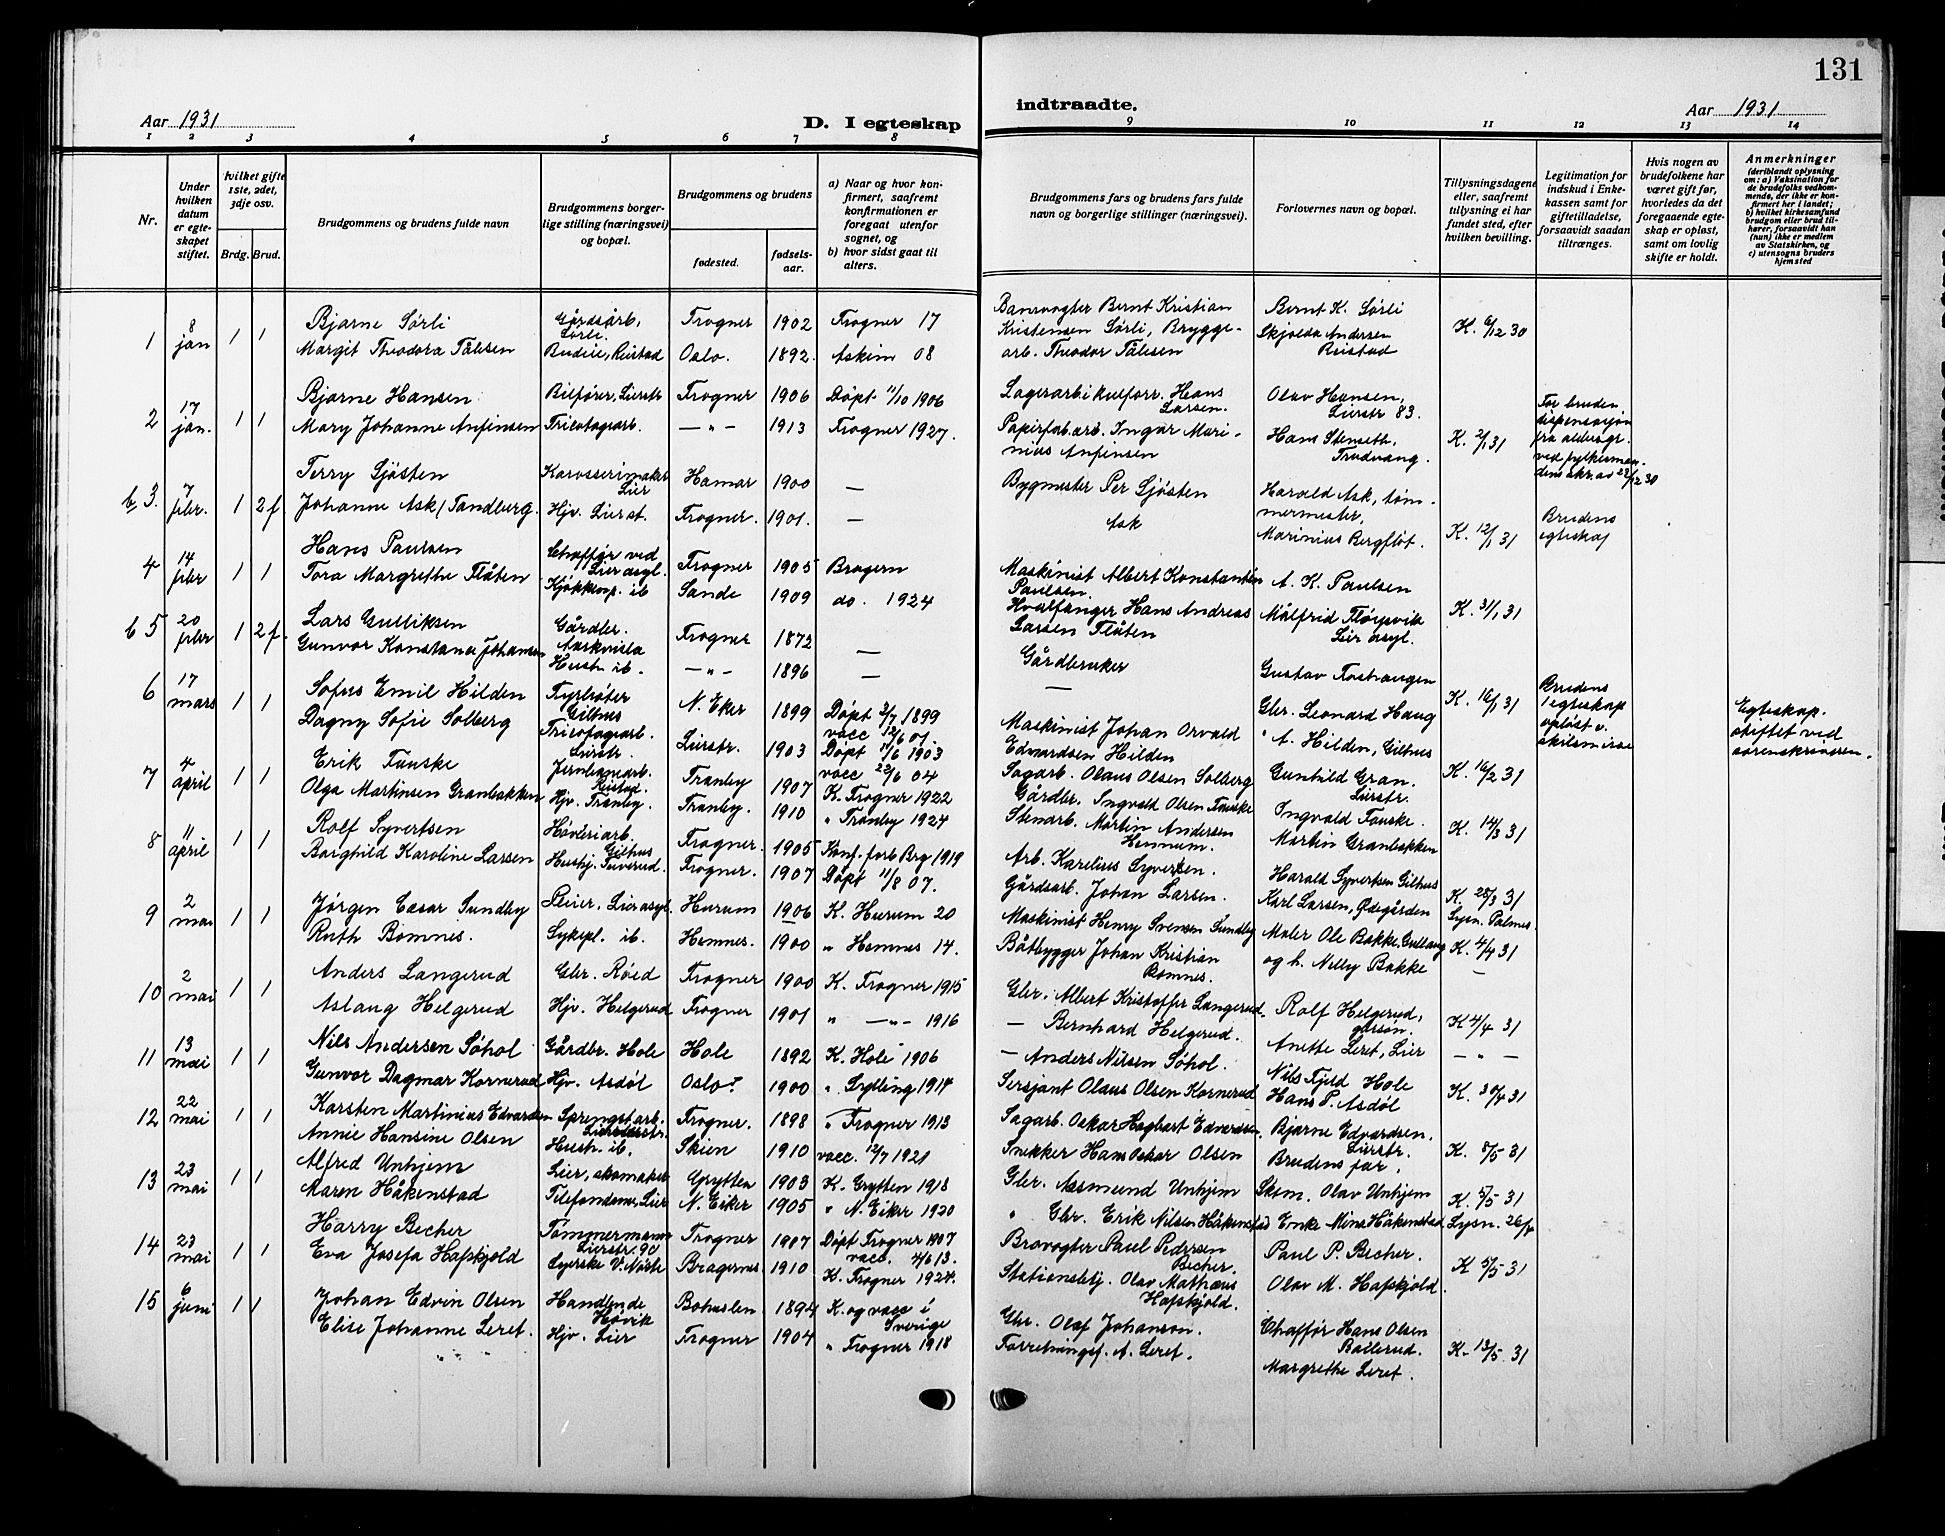 131
Aar 1931
D. I egteskap
indtraadte.
Aar 1931
1 2 3 4 5 6 7 8 9 10 11 12 13 14
Nr.
Under hvilken datum er egteskapet stiftet.
hvilket gifte 1ste, 2det, 3dje osv.
Brdg. Brud.
Brudgommens og brudens fulde navn
Brudgommens borgerlige stilling (næringsvei) og bopæl.
Brudgommens og brudens
fødested. fødselsaar.
a) Naar og hvor konfirmert, saafremt konfirmationen er foregaat utenfor sognet, og b) hvor sidst gaat til alters.
Brudgommens fars og brudens fars fulde navn og borgerlige stillinger (næringsvei).
Forlovernes navn og bopæl.
Tillysningsdagene eller, saafremt tillysning ei har fundet sted, efter hvilken bevilling.
Legitimation for indskud i Enkekassen samt for giftetilladelse, forsaavidt saadan tiltrænges.
Hvis nogen av brudefolkene har været gift før, hvorledes da det foregaaende egteskap er opløst, samt om lovlig skifte er holdt.
Anmerkninger (deriblandt oplysning om: a) Vaksination for de brudefolks vedkommende, der ikke er konfirmert her i landet; b) hvilket kirkesamfund brudgom eller brud tilhører, forsaavidt han (hun) ikke er medlem av Statskirken, og c) utensogns bruders hjemsted
1 8 jan 1 1 Bjarne Sørli Gårdsarb. Sørli Frogner 1902 Frogner 17 Banevogter Bernt Kristian Kristensen Sørli, Brygge- Bernt K. Sørli K. 6/12 30
Margit Theodora Tålesen Budeie, Reistad Oslo. 1892. Askim 08 arb. Theodor Tålesen Skjolda Andersen Reistad
2 17 jan. 1 1 Bjarne Hansen Bilfører, Lierstr Frogner 1906 Døpt 11/10 1906 Lagerarb i kulforr. Hans Larsen. Olav Hansen, Lierstr 83. K. 2/1 31 For bruden dispensasjon fra aldersgr. ved fylkesmandens skr. av 23/12 30
Mary Johanne Anfinsen Tricotagearb. — " — 1913 Frogner 1927. Papirfab.arb. Ingar Marinius Anfinsen Hans Stenseth, Trudvang.
b 3. 7 febr. 1 2 f. Terry Sjøsten Karosserimaker Lier Hamar 1900 — Bygmester Per Sjøsten Harald Ask, tømmermester, K. 12/1 31 Brudens egteskap
Johanne Ask / Tandberg. Hjv. Lierst. Frogner. 1901. — Ask Marinius Bergfløt.
4 14 febr 1 1 Hans Paulsen Chaffør ved Lier asyl. Frogner 1905 Bragern Maskinist Albert Konstantin Paulsen. A. K. Paulsen K. 31/1 31
Tora Margrethe Flåten Kjøkkenp. ib Sande 1909 do. 1924 Hvalfanger Hans Andreas Larsen Flåten Målfrid Flørsvik Lier asyl.
b 5 20 febr 1 2 f. Lars Gulliksen Gårdbr. Frogner 1872 — Gårdbruker Gustav Fostvangen K. 16/1 31 Brudens 1 egteskap opløst v. skilsmisse Egteskap. stiftet ved sorenskriveren.
Gunvor Konstance Johansen Hustr. ib. — " — 1896 — — Gbr. Leonard Haug
6 17 mars 1 1 Sofus Emil Hilden Fyrbøter Gilhus N. Eker 1899 Døpt 2/7 1899 vacc 12/6 01. Maskinist Johan Orvald Edvardsen Hilden " A. Hilden, Gilhus K. 16/2 31
Dagny Sofie Solberg Tricotagearb. Lierstr. Lierstr. 1903 Døpt 11/6 1903 vacc 22/6 04 Sagarb. Olaus Olsen Solberg Gunhild Gran. Lierstr.
7 4 april 1 1 Erik Fauske Jernbanearb. Reistad. Tranby 1907 K. Frogner 1922 Gårdbr. Ingvald Olsen Fauske Ingvald Fauske. K. 14/3 31
Olga Martinsen Granbakken Hjv. Tranby. Tranby. 1910 " Tranby 1924 Stenarb. Martin Andersen Hennum. Martin Granbakken
8 11 april 1 1 Rolf Syvertsen Høvleriarb. Gilhus Frogner. 1905 Konf. forb Brg 1919 Arb. Karelius Syvertsen. Harald Syvertsen Gilhus K. 28/3 31
Borghild Karoline Larsen Hushj. Tuverud. Frogner. 1907 Døpt 11/8 07. Gårdsarb. Johan Larsen. Karl Larsen, Ødegården Lysn. Palmes.
9 2 mai 1 1 Jørgen Cæsar Sundby Pleier. Lier asyl. Hurum 1906 K. Hurum 20 Maskinist Henry Svensen Sundby Maler Ole Bakke, Gullaug K. 4/4 31
Ruth Bomnes. Sykepl. ib. Hemnes. 1900 " Hemnes 14. Båtbygger Johan Kristian Bomnes. og h. Nelly Bakke —
10 2 mai 1 1 Anders Langerud Gbr. Røed Frogner 1900 K. Frogner 1915 Gbr. Albert Kristoffer Langerud. Rolf Helgerud, K 4/4 31
Aslaug Helgerud Hjv. Helgerud Frogner 1901 " — " — 1916 — Bernhard Helgerud. Anette Leret, Lier — " —
11 13 mai 1 1 Nils Andersen Søhol Gårdbr. Hole Hole 1892 K. Hole 1906 — Anders Nilsen Søhol. Nils Fjeld Hole K. 30/4 31
Gunvor Dagmar Kornerud Hjv. Asdøl Oslo? 1900 " Sylling 1914 Sersjant Olaus Olsen Kornerud Hans P. Asdøl
12 22 mai 1 1 Karsten Martinius Edvardsen Sprengst.arb. Frogner. 1898 " Frogner 1913 Sagarb. Oskar Hagbart Edvardsen. Bjarne Edvardsen, Lierstr. K. 8/5 31
Annie Hansine Olsen Hustr. ib. Skien 1910 vacc. 12/7 1921 Snekker Hans Oskar Olsen Brudens far.
13 23 mai 1 1 Alfred Unhjem Lier, skomaker Grytten 1903 K. Grytten 1918 Gbr. Aasmund Unhjem Skom. Olav Unhjem K. 5/5 31
Maren Håkenstad Telefondame, Lier N. Eiker 1905 " N. Eiker 1920 " Gbr. Erik Nilsen Håkenstad Enke Mina Håkenstad Lysn.
14 23 mai 1 1 Harry Becher Tømmermann Lierstr. 90 Frogner 1907 Døpt Frogner 1907 vacc. 4/6 13. Brovogter Paul Pedersen Becher. Paul P. Becher. K 5/5 31
Eva Josefa Hafskjold Syerske V. Nøste Bragernes 1910 K. Frogner 1924. Stationsbetj. Olav Mathæus Hafskjold. Olav M. Hafskjold.
15 6 juni 1 1 Johan Edvin Olsen Handlende Høvik Bohuslen 1894 K. og vacc i Sverige Gbr. Olaf Johanson. Chaffør Hans Olsen Ballerud. K. 13/5. 31
Elise Johanne Leret. Hjv. Lier Frogner 1904 " Frogner 1918 Forretningsf. A. Leret. Margrethe Leret.